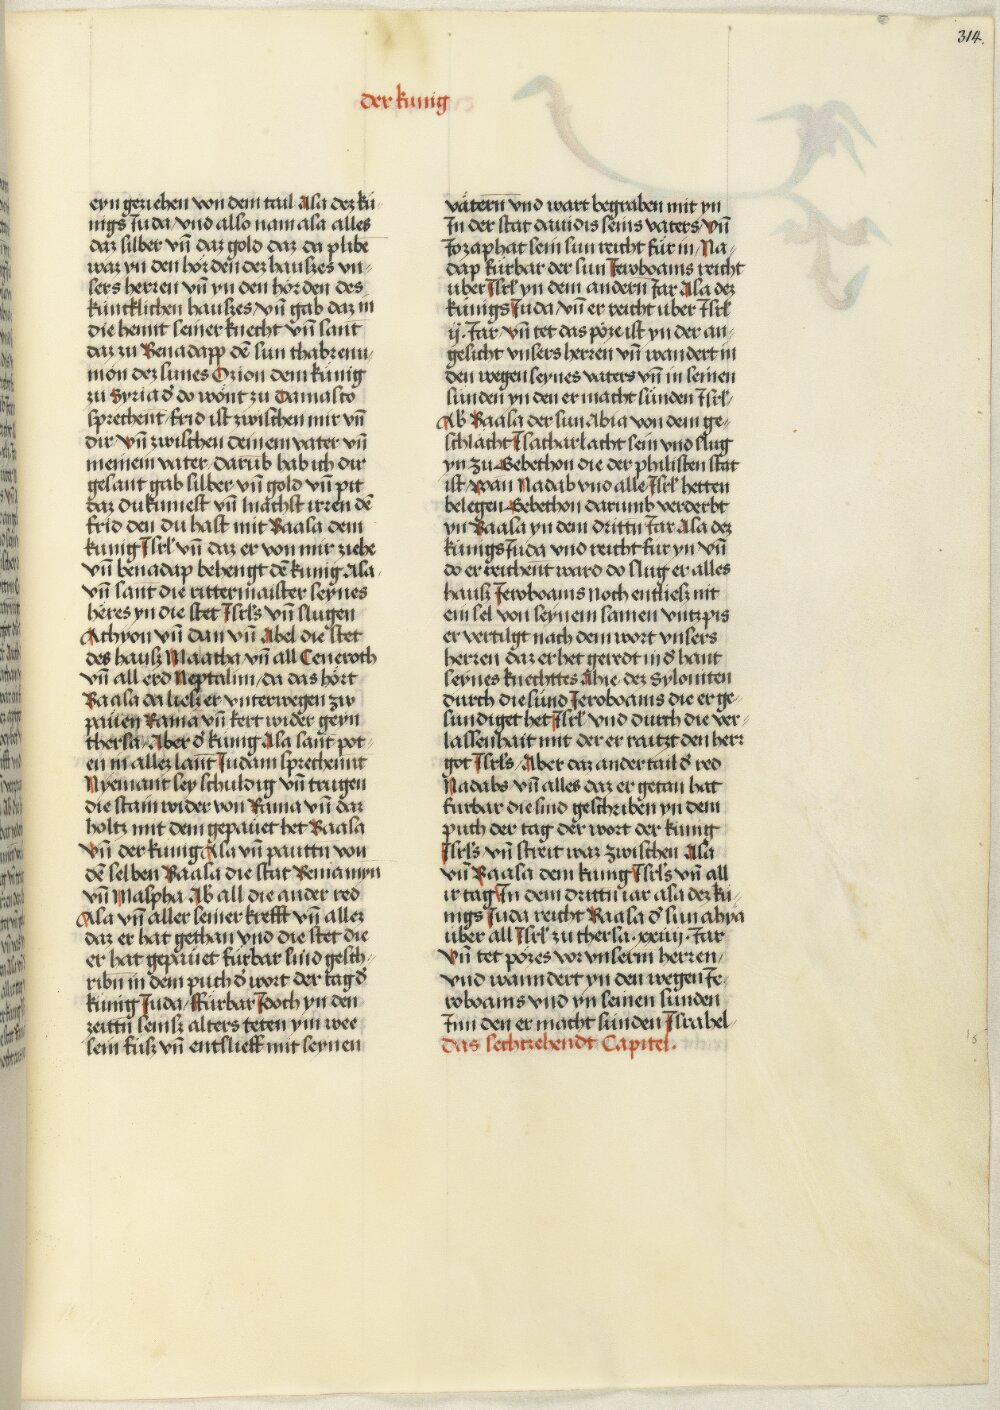 314.
der kunig
eyn geziehen von dem tail Asa dez kü-
nigs Juda vnd also nam asa alles
daz silber vñ daz gold daz da plibe
waz yn den hörden dez hauszes vn-
sers herren vñ yn den hörden des
künicklichen hauszes vñ gab daz in
die hennt seiner knecht vñ sant
daz zu Benadapp dē sun thabrenu-
mon dez sunes Ozion dem künig
zu Syria d' do wont zu Damasco
sprechent frid ist zwischen mir vñ
dir vñ zwischen deinem vater vñ
meinem vater darūb hab ich dir
gesant gab silber vñ gold vñ pit
daz du kumest vñ machst irren dē
frid den du hast mit Baasa dem
kunig Jsrl' vñ daz er von mir ziehe
vñ benadap behengt dē kunig Asa
vñ sant die rittermaister seynes
heres yn die stet Jsrls vñ slugen
Athyon vñ dan vñ Abel die stet
des hausz Maacha vñ all Ceneroth
vñ all erd Neptalim da das hört
Baasa da liesz er vnterwegen zw
pauen Rama vñ kert wider geyn
thersa Aber d' kunig Asa sant pot-
en in allez lant Judam sprechennt
Nyemant sey schuldig vñ trugen
die stain wider von Rama vñ daz
holtz mit dem gepauet het Baasa
vñ der kunig Asa vñ pauttn von
dē selben Baasa die stat Beniamyn
vñ Maspha Ab all die ander red
Asa vñ aller seiner krefft vñ allez
daz er hat gethan vnd die stet die
er hat gepauet fürbar sind gesch-
ribn in dem puch d' wort der tag d'
künig Juda fürbar Jdoch yn den
zeittn seinsz alters teten ym wee
sein füsz vñ entslieff mit seynen
vätern vnd wart begraben mit yn
Jn der stat dauidis seins vaters vñ
Jozaphat sein sun reicht für in Na-
dap fürbar der sun Jeroboams reicht
über Jsrl' yn dem andern Jar Asa dez
künigs Juda vñ er reicht über Jsrl'
ij. Jar vñ tet das pöze ist yn der an-
gesicht vnsers herren vñ wandert in
den wegen seynes vaters vñ in seinen
sünden yn den er macht sünden Jsrl'
Ab Baasa der sun Abia von dem ge-
schlächt Jsachar lacht sein vnd slug
yn zu Gebethon die der philisten stat
ist wan Nadab vnd alle Jsrl' hetten
belegen Gebethon darumb verderbt
yn Baasa yn dem drittn Jar Asa dez
künigs Juda vnd reicht für yn vñ
do er reichent ward do slug er alles
hausz Jeroboams noch entliesz nit
ein sel von seynem samen vntzpis
er vertilgt nach dem wort vnsers
herren daz er het geredt in d' hant
seynes knechttes Ahie dez Syloniten
durch die sünd Jeroboams die er ge-
sundiget het Jsrl' vnd durch die ver-
lassenhait mit der er raitzt den herr
got Jsrls Aber daz ander tail d' red
Nadabs vñ alles daz er getan hat
fürbar die sind geschriben yn dem
puch der tag der wort der künig
Jsrls vñ streit waz zwischen Asa
vñ Baasa dem kunig Jsrls vñ all
ir tag Jn dem drittn iar asa dez kü-
nigs Juda reicht Baasa d' sun ahya
über all Jsrl' zu thersa xxiiij Jar
vñ tet pözes vor vnserm herren
vnd wanndert yn den wegen Je-
roboams vnd yn seinen sünden
Jnn den er macht sünden Jsrahel
das sechtzehendt Capitel.